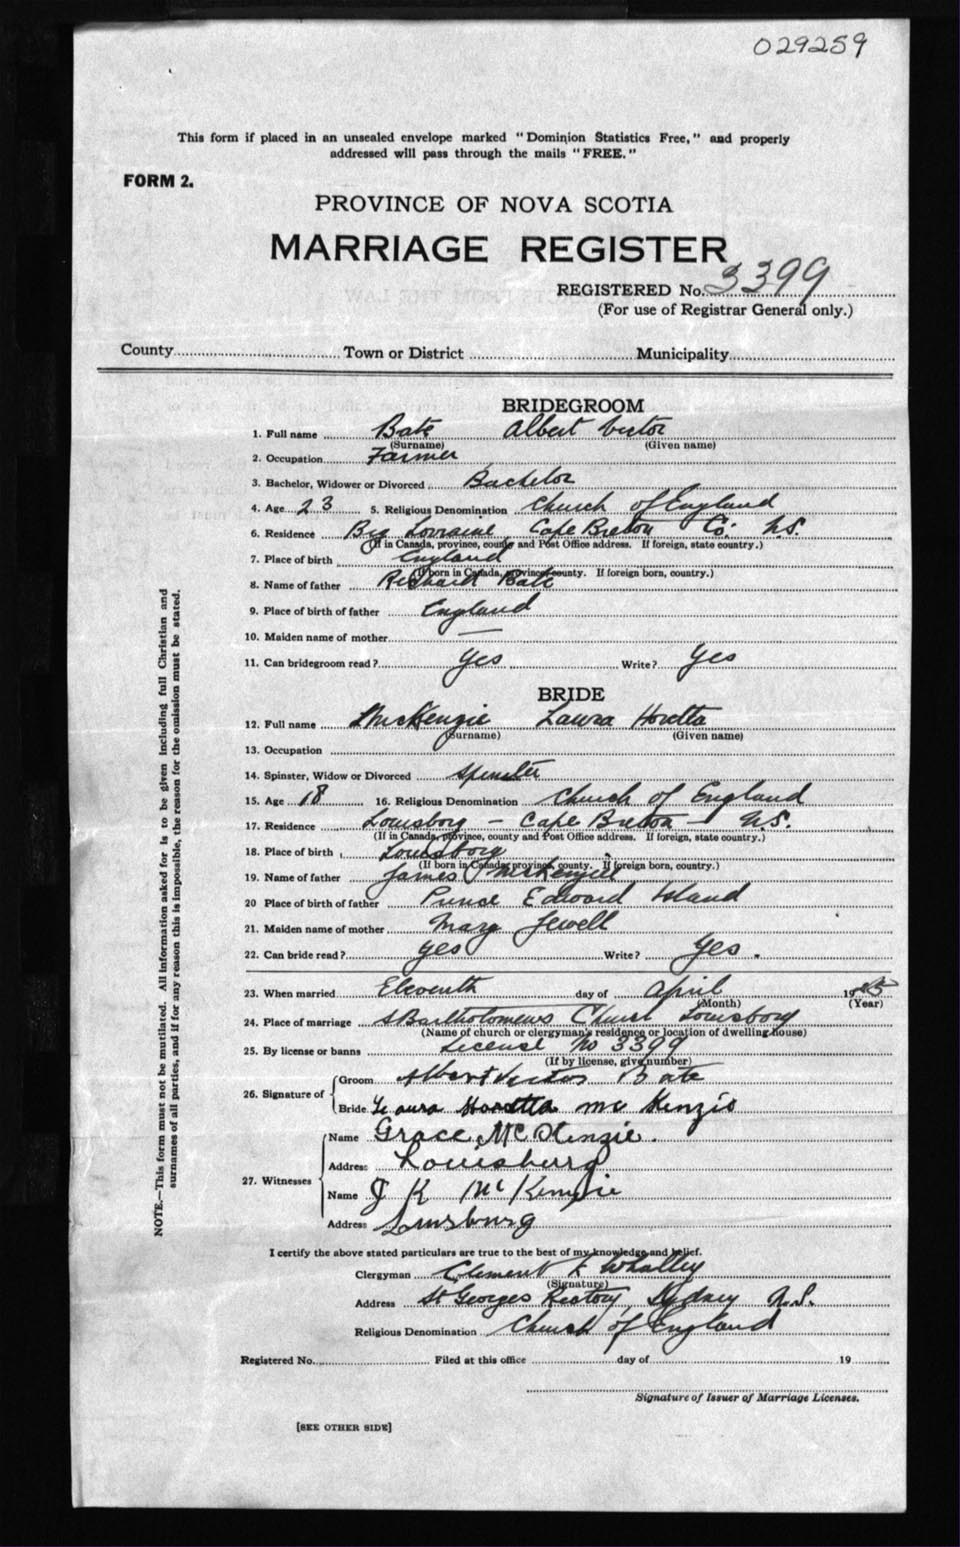 029259
This form if placed in an unsealed envelope marked "Dominion Statistics Free," and properly
addressed will pass through the mails "FREE."
FORM 2.
PROVINCE OF NOVA SCOTIA
MARRIAGE REGISTER
REGISTERED No. 3399
(For use of Registrar General only.)
County Town or District Municipality
BRIDEGROOM
1. Full name Bate Albert Victor
(Surname) (Given name)
2. Occupation Farmer
3. Bachelor, Widower or Divorced Bachelor
4. Age 23 5. Religious Denomination Church of England
6. Residence Big Lorraine Cape Breton Co. N.S.
(If in Canada, province, county and Post Office address. If foreign, state country.)
7. Place of birth England
(If born in Canada, province, county. If foreign born, country.)
8. Name of father Richard Bate
9. Place of birth of father England
10. Maiden name of mother —
11. Can bridegroom read? Yes Write? Yes
BRIDE
12. Full name McKenzie Laura Horetta
(Surname) (Given name)
13. Occupation
14. Spinster, Widow or Divorced Spinster
15. Age 18 16. Religious Denomination Church of England
17. Residence Louisborg - Cape Breton - N.S.
(If in Canada, province, county and Post Office address. If foreign, state country.)
18. Place of birth Louisborg
(If born in Canada, province, county. If foreign born, country.)
19. Name of father James McKenzie
20 Place of birth of father Prince Edward Island
21. Maiden name of mother Mary Jewell
22. Can bride read? Yes Write? Yes.
23. When married Eleventh day of April 19
(Month) (Year)
24. Place of marriage S Bartholomews Church Louisborg
(Name of church or clergyman's residence or location of dwelling house)
25. By license or banns License No 3399
(If by license, give number)
26. Signature of Groom Albert Victor Bate
Bride Laura Horetta Mc Kenzie
27. Witnesses Name Grace McKenzie.
Address Louisburg
Name J K McKenzie
Address Louisburg
I certify the above stated particulars are true to the best of my knowledge and belief.
Clergyman Clement F Whalley
(Signature)
Address St Georges Rectory, Sydney N.S.
Religious Denomination Church of England
Registered No. Filed at this office day of 19
Signature of Issuer of Marriage Licenses.
[SEE OTHER SIDE]
NOTE.—This form must not be mutilated. All information asked for is to be given including full Christian and
surnames of all parties, and if for any reason this is impossible, the reason for the omission must be stated.